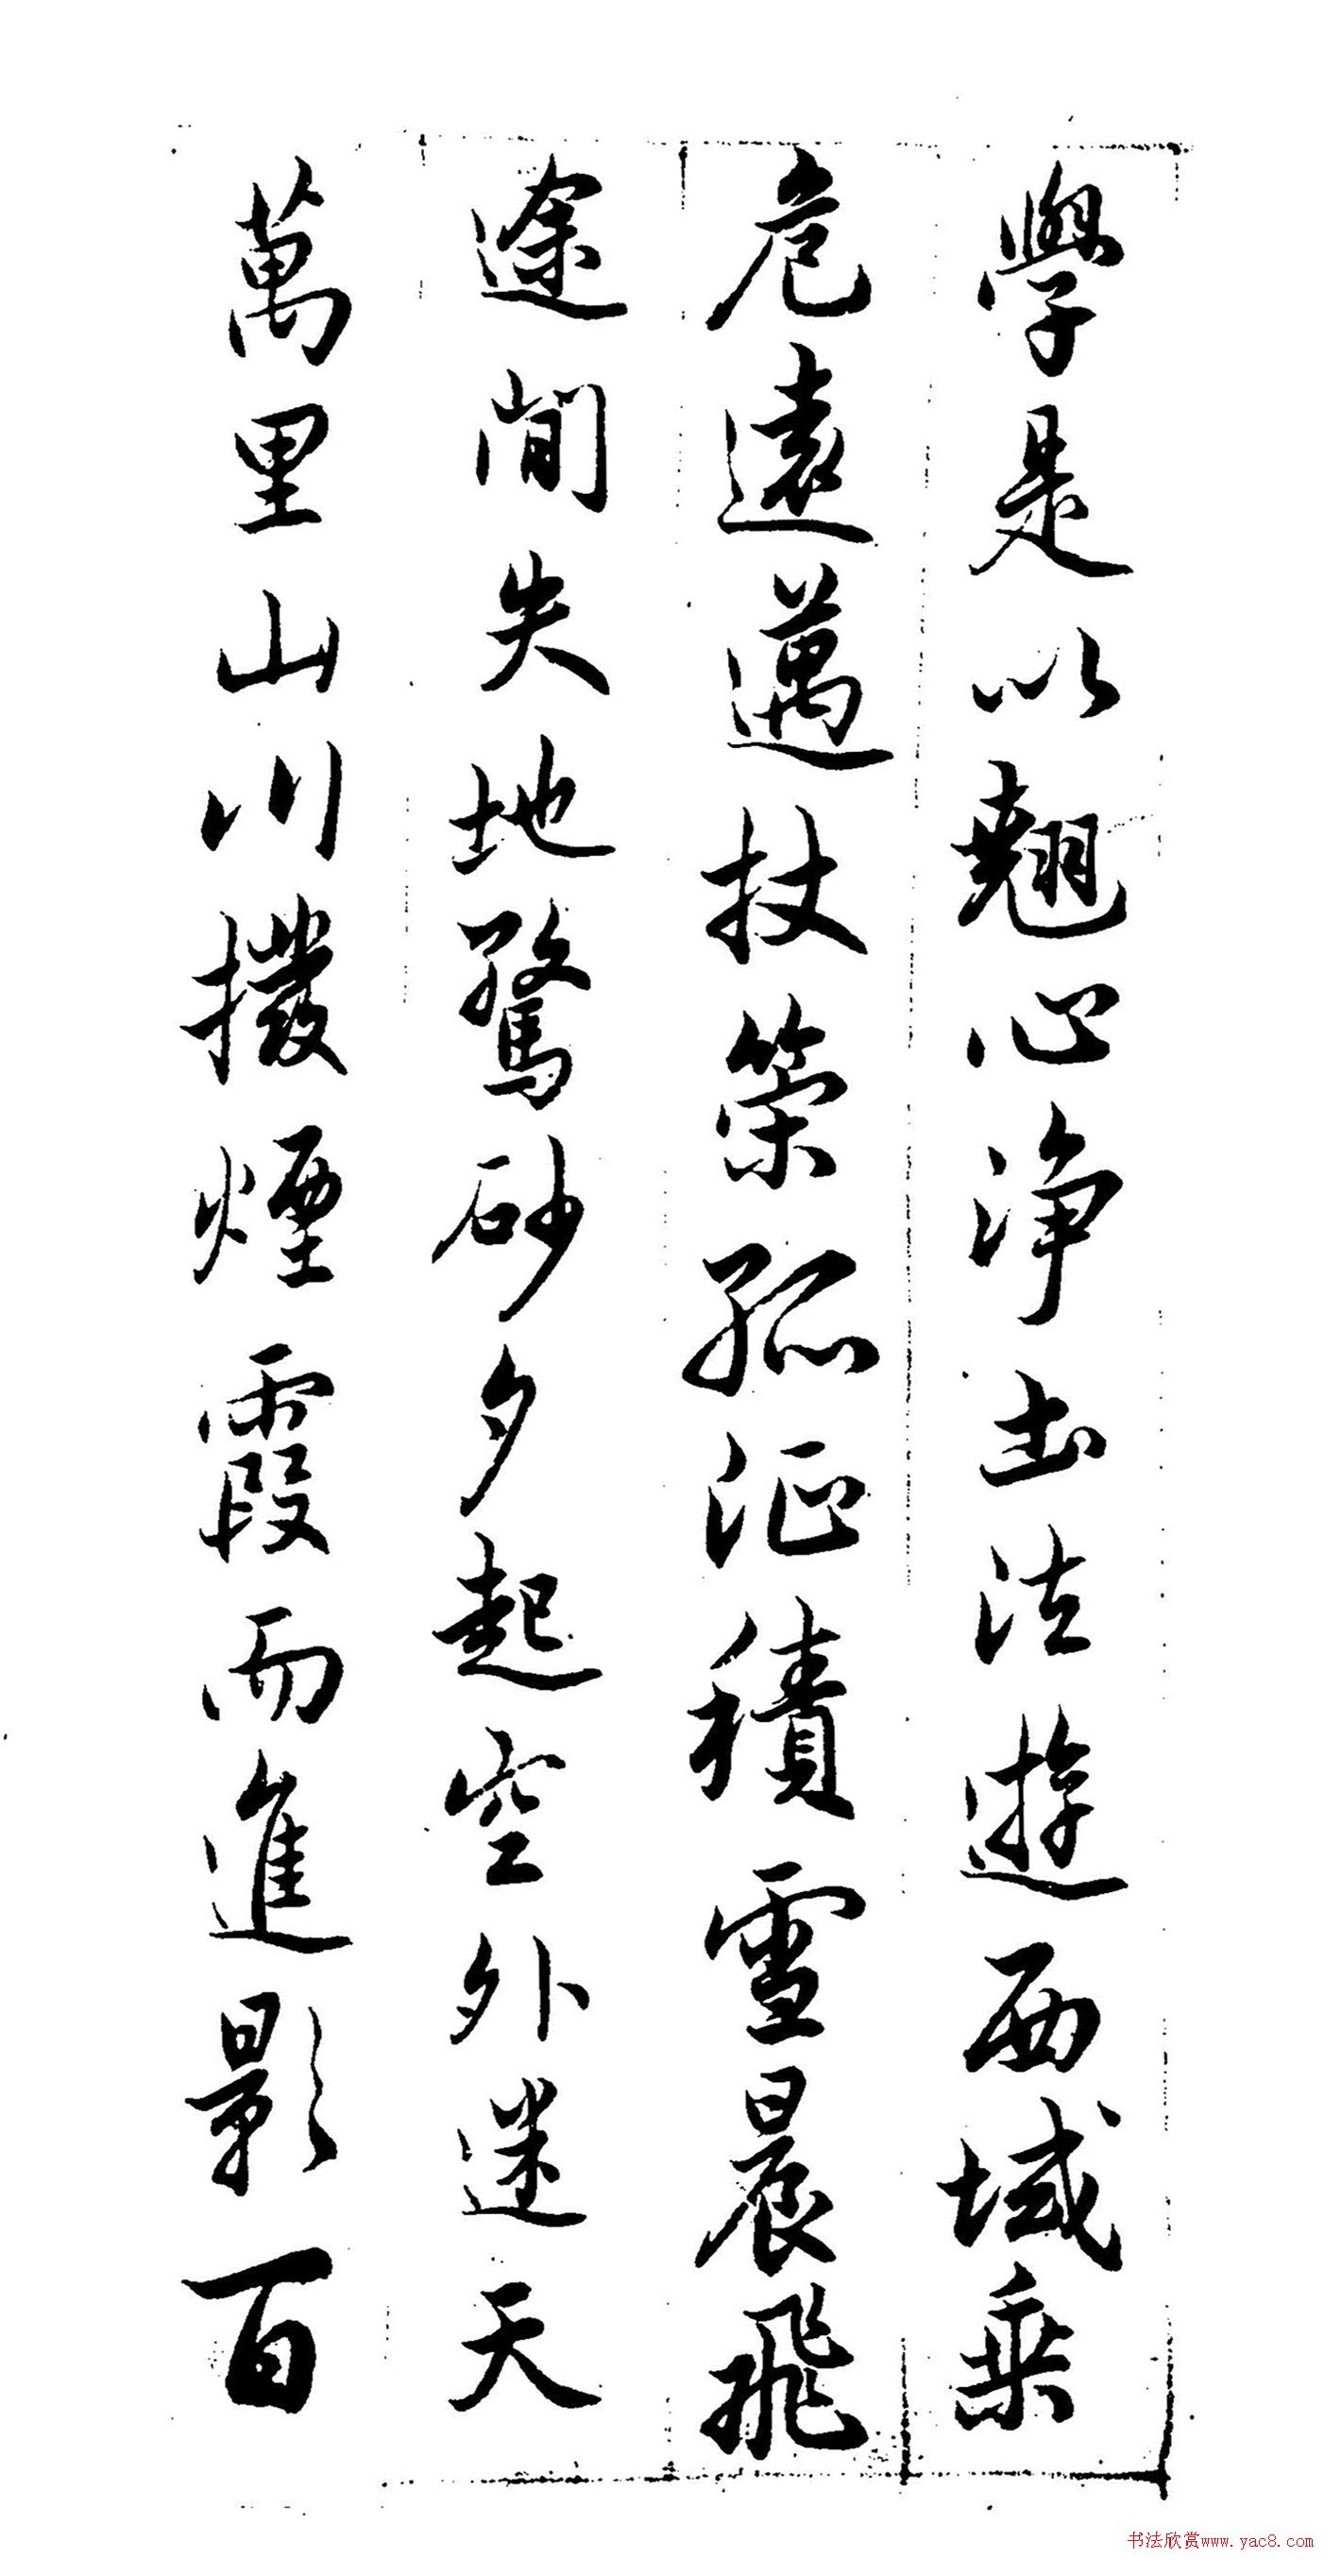 學是以翹心淨土法遊西域乗
危遠邁杖策孤征積雪晨飛
途間失地驚砂夕起空外迷天
萬里山川撥煙霞而進影百
书法欣赏www.yac8.com